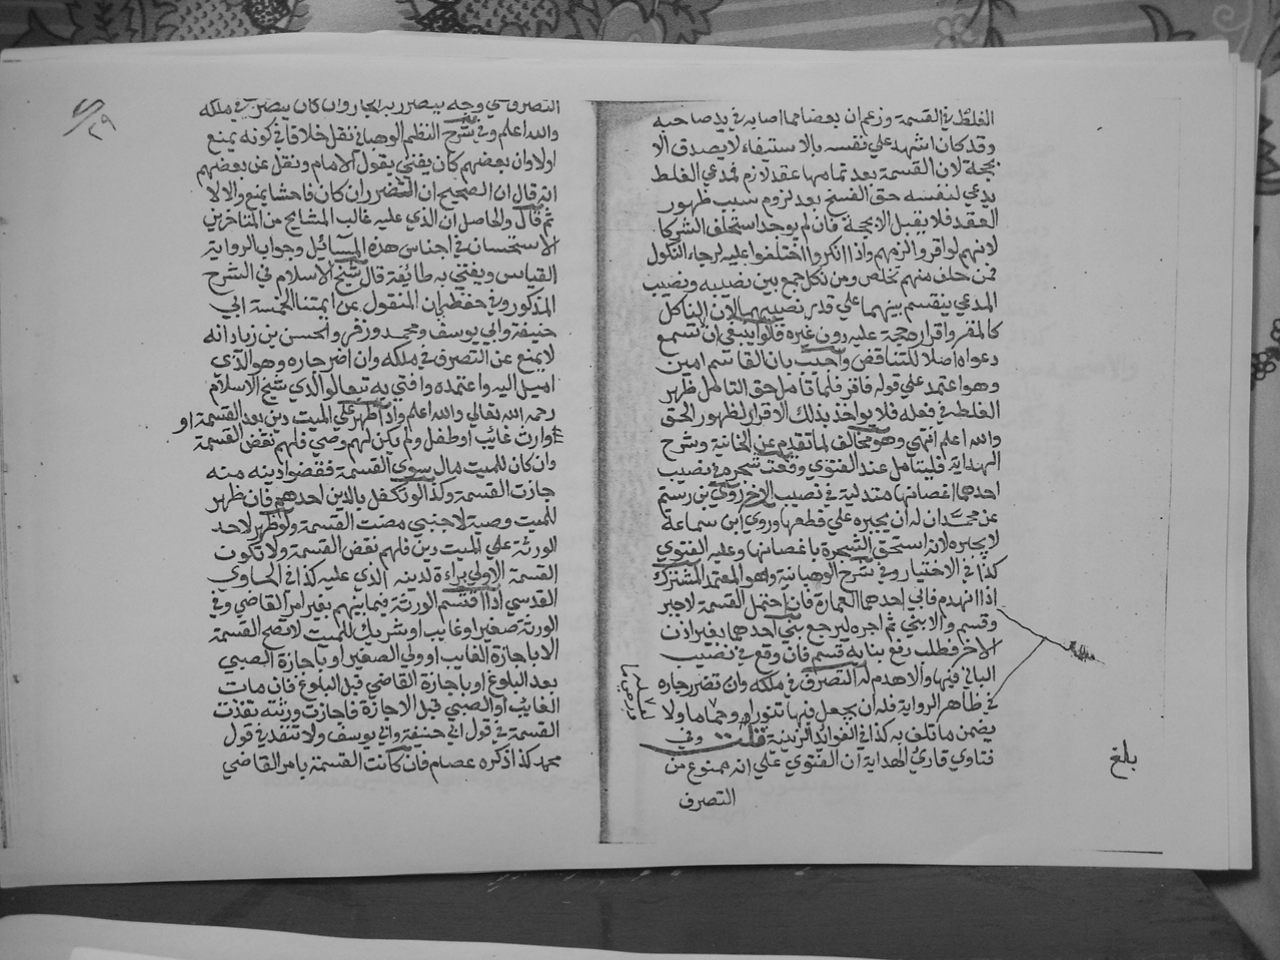 الغلط في القسمة وزعم ان بعضا مما اصابه في يد صاحبه
وقد كان اشهد علي نفسه بالاستيفاء لا يصدق الا
بحجة لان القسمة بعد تمامها عقد لازم فمدعي الغلط
يدعي لنفسه حق الفسخ بعد لزوم سبب ظهور
العقد فلا يقبل الا بحجة فان لم يوجد استحلف الشركا
لانهم لو اقروا لزمهم واذا انكروا اختلفوا عليه لرجاء النكول
فمن حلف منهم تخلص ومن نكل جمع بين نصيبه ونصيب
المدعي ينقسم بينهما علي قدر نصيبهما لان الناكل
كالمقر واقراره حجة عليه دون غيره قالوا ينبغي ان تسمع
دعواه اصلا للتناقض واجيب بان القاسم امين
وهو اعتمد علي قوله فاقر فلما تامل حق التامل ظهر
الغلط في فعله فلا يواخذ بذلك الاقرار لظهور الحق
والله اعلم انتهي وهو مخالف لما تقدم عن الخانية وشرح
الهداية فليتامل عند الفتوي وقعت شجرة في نصيب
احدهما اغصانها متدلية في نصيب الاخر روي بن رستم
عن محمد ان له ان يجبره علي قطعها وروي ابن سماعة
لا يجبره لانه استحق الشجرة باغصانها وعليه الفتوي
كذا في الاختيار وفي شرح الوهبانية وهو المعتمد المشترك
اذا انهدم فابي احدهما العمارة فان احتمل القسمة لا جبر
وقسم والا بني ثم اجره ليرجع بني احدهما بغير اذن
الاخر فطلب رفع بنايه قسم فان وقع في نصيب
الباني فبها والا هدم له التصرف في ملكه وان تضرر جاره
في ظاهر الرواية فله ان يجعل فيها تنورا وحماما ولا
يضمن ما تلف به كذا في الفوائد الزينية قلت وفي
فتاوي قاري الهداية ان الفتوي علي انه ممنوع من
التصرف
بلغ
٢٩
التصرف في وجه يتضرر به الجار وان كان يتصرف في ملكه
والله اعلم وفي شرح النظم الوهباني نقل خلافا في كونه يمنع
اولا وان بعضهم كان يفتي بقول الامام ونقل عن بعضهم
انه قال ان الصحيح ان الضرر ان كان فاحشا يمنع والا لا
ثم قال والحاصل ان الذي عليه غالب المشايخ من المتاخرين
الاستحسان في اجناس هذه المسائل وجواب الرواية
القياس ويفتي به طايفة قال شيخ الاسلام في الشرح
المذكور وفي حفظي ان المنقول عن ايمتنا الخمسة ابي
حنيفة وابي يوسف ومحمد وزفر والحسن بن زياد انه
لا يمنع عن التصرف في ملكه وان اضر جاره وهو الذي
اميل اليه واعتمده وافتي به تبعا لوالدي شيخ الاسلام
رحمه الله تعالي والله اعلم واذا ظهر علي الميت دين بعد القسمة او
وارث غايب او طفل ولم يكن لهم وصي فلهم نقض القسمة
وان كان للميت مال سوي القسمة فقضوا دينه منه
جازت القسمة وكذا لو تكفل بالدين احدهم فان ظهر
للميت وصية لاجنبي مضت القسمة ولو ظهر لاحد
الورثة علي الميت دين فلهم نقض القسمة ولا تكون
القسمة الاولي براءة لدينه الذي عليه كذا في الحاوي
القدسي اذا اقتسم الورثة فيما بينهم بغير امر القاضي وفي
الورثة صغير او غايب او شريك للميت لا تصح القسمة
الا باجازة الغايب او ولي الصغير او باجازة الصبي
بعد البلوغ او باجازة القاضي قبل البلوغ فان مات
الغائب او الصبي قبل الاجازة فاجازت ورثته نفذت
القسمة في قول ابي حنيفة وابي يوسف ولا تنفذ في قول
محمد كذا ذكره عصام فان كانت القسمة بامر القاضي